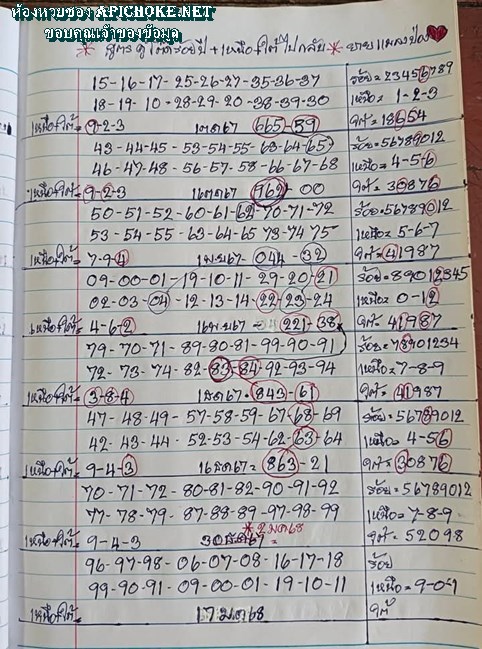 ห้องหวยซอง APICHOKE.NET
ขอบคุณเจ้าของข้อมูล
15-16-17-25-26-27-35-36-37 ร้อย=23456789
18-19-10-28-29-20-38-39-30 เหนือ=1-2-3
เหนือ+ใต้=9-2-3 665-59 ใต้=18654
43-44-45-53-54-55-63-64-65 ร้อย=56789012
46-47-48-56-57-58-66-67-68 เหนือ=4-5-6
เหนือ+ใต้=9-2-3 962-00 ใต้=30876
50-51-52-60-61-62-70-71-72 ร้อย=56789012
53-54-55-63-64-65-73-74-75 เหนือ=5-6-7
เหนือ+ใต้=7-9-4 044-32 ใต้=41987
09-00-01-19-10-11-29-20-21 ร้อย=89012345
02-03-04-12-13-14-22-23-24 เหนือ=0-1-2
เหนือ+ใต้=4-6-2 221-38 ใต้=41987
79-70-71-89-80-81-99-90-91 ร้อย=78901234
72-73-74-82-83-84-92-93-94 เหนือ=7-8-9
เหนือ+ใต้=3-8-4 1ธค67=843-61 ใต้=41987
47-48-49-57-58-59-67-68-69 ร้อย=56789012
42-43-44-52-53-54-62-63-64 เหนือ=4-5-6
เหนือ+ใต้=9-4-3 16ธค67=863-21 ใต้=30876
70-71-72-80-81-82-90-91-92 ร้อย=56789012
77-78-79-87-88-89-97-98-99 เหนือ=7-8-9
2มค68
เหนือ+ใต้=9-4-3 ใต้=52098
96-97-98-06-07-08-16-17-18 ร้อย
99-90-91-09-00-01-19-10-11 เหนือ=9-0-1
เหนือ+ใต้= 17มค68 ใต้